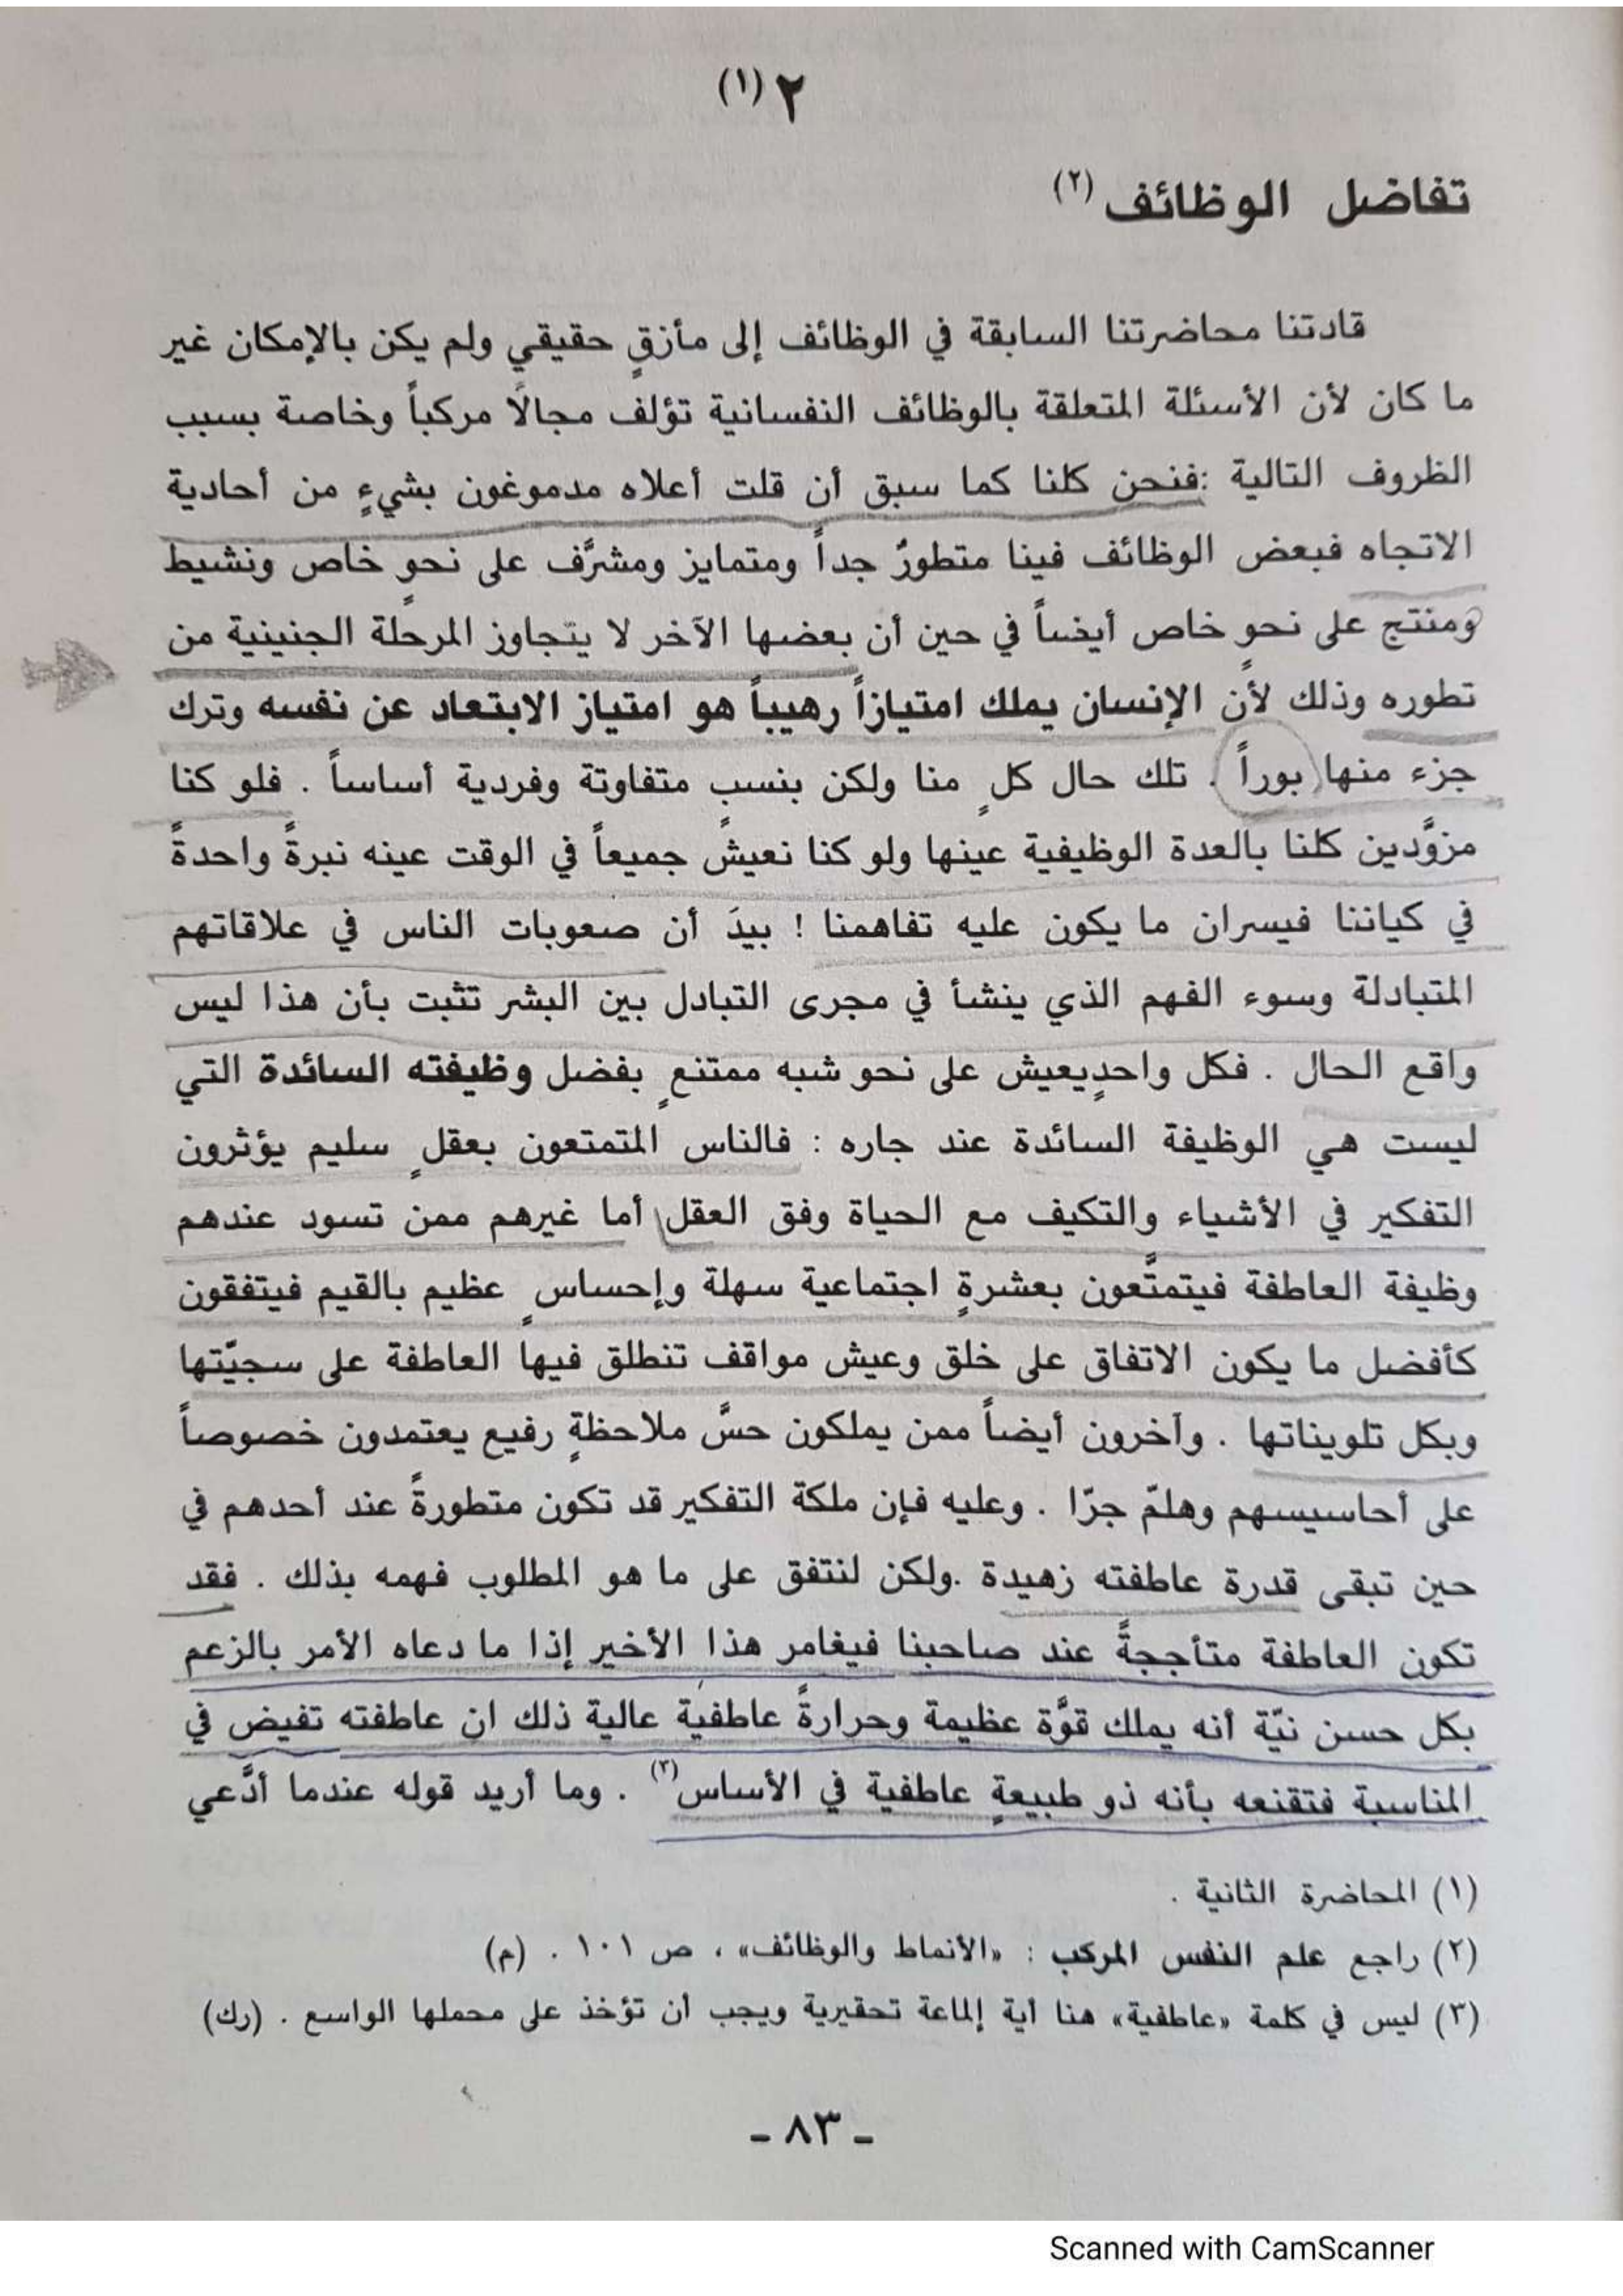 ٢ (١)
تفاضل الوظائف (٢)
قادتنا محاضرتنا السابقة في الوظائف إلى مأزقٍ حقيقي ولم يكن بالإمكان غير
ما كان لأن الأسئلة المتعلقة بالوظائف النفسانية تؤلف مجالًا مركباً وخاصة بسبب
الظروف التالية :فنحن كلنا كما سبق أن قلت أعلاه مدموغون بشيءٍ من أحادية
الاتجاه فبعض الوظائف فينا متطورٌ جداً ومتمايز ومشرَّف على نحوٍ خاص ونشيط
ومنتج على نحوٍ خاص أيضاً في حين أن بعضها الآخر لا يتجاوز المرحلة الجنينية من
تطوره وذلك لأن الإنسان يملك امتيازاً رهيباً هو امتياز الابتعاد عن نفسه وترك
جزء منها بوراً . تلك حال كلٍ منا ولكن بنسبٍ متفاوتة وفردية أساساً . فلو كنا
مزوَّدين كلنا بالعدة الوظيفية عينها ولو كنا نعيش جميعاً في الوقت عينه نبرةً واحدةً
في كياننا فيسران ما يكون عليه تفاهمنا ! بيدَ أن صعوبات الناس في علاقاتهم
المتبادلة وسوء الفهم الذي ينشأ في مجرى التبادل بين البشر تثبت بأن هذا ليس
واقع الحال . فكل واحدٍيعيش على نحو شبه ممتنعٍ بفضل وظيفته السائدة التي
ليست هي الوظيفة السائدة عند جاره : فالناس المتمتعون بعقلٍ سليم يؤثرون
التفكير في الأشياء والتكيف مع الحياة وفق العقل أما غيرهم ممن تسود عندهم
وظيفة العاطفة فيتمتَّعون بعشرةٍ اجتماعية سهلة وإحساسٍ عظيم بالقيم فيتفقون
كأفضل ما يكون الاتفاق على خلق وعيش مواقف تنطلق فيها العاطفة على سجيّتها
وبكل تلويناتها . وآخرون أيضاً ممن يملكون حسَّ ملاحظةٍ رفيع يعتمدون خصوصاً
على أحاسيسهم وهلمّ جرّا . وعليه فإن ملكة التفكير قد تكون متطورةً عند أحدهم في
حين تبقى قدرة عاطفته زهيدة .ولكن لنتفق على ما هو المطلوب فهمه بذلك . فقد
تكون العاطفة متأججةً عند صاحبنا فيغامر هذا الأخير إذا ما دعاه الأمر بالزعم
بكل حسن نيّة أنه يملك قوَّة عظيمة وحرارةً عاطفية عالية ذلك ان عاطفته تفيض في
المناسبة فتقنعه بأنه ذو طبيعةٍ عاطفية في الأساس(٣) . وما أريد قوله عندما أدَّعي
(١) المحاضرة الثانية .
(٢) راجع علم النفس المركب : «الأنماط والوظائف» ، ص ١٠١ . (م)
(٣) ليس في كلمة «عاطفية» هنا أية إلماعة تحقيرية ويجب أن تؤخذ على محملها الواسع . (رك)
- ٨٣ -
Scanned with CamScanner